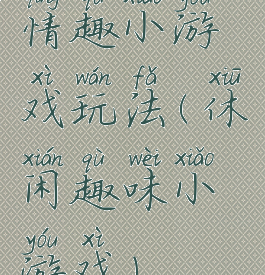 qíng qù xiǎo yóu
情趣小游
xì wán fǎ xiū
戏玩法(休
xián qù wèi xiǎo
闲趣味小
yóu xì
游戏)